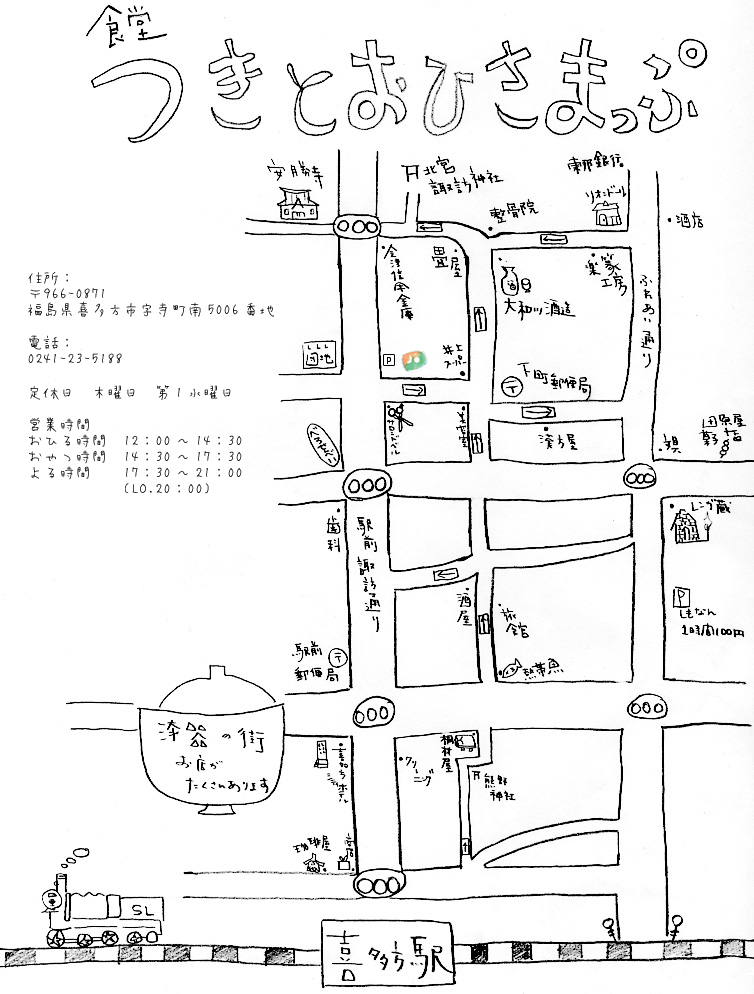 食堂
つきとおひさまっぷ
安勝寺
北宮
諏訪神社
東邦銀行
リオンドール
整骨院
酒店
会津信用金庫
畳屋
楽篆工房
大和川酒造
ふれあい通り
住所：
〒966-0871
福島県喜多方市字寺町南5006番地
電話：
0241-23-5188
定休日　木曜日　第1水曜日
営業時間
おひる時間　12：00～14：30
おやつ時間　14：30～17：30
よる時間　17：30～21：00
(LO.20：00)
団地
P
井上スーパー
〒
下町郵便局
漢方屋
歯科
駅前諏訪通り
レンガ蔵
P
しもなん
1時間100円
酒屋
旅館
熱帯魚
駅前郵便局
〒
漆器の街
お店が
たくさんあります
クリーニング
棺材屋
熊野神社
珈琲屋
SL
喜多方駅